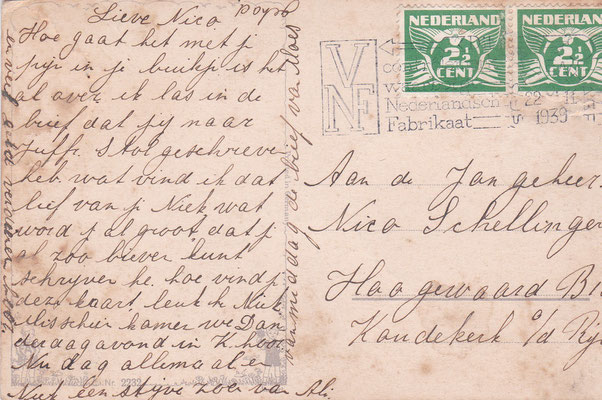 Lieve Nico
Hoe gaat het met j
pijn in je buikje is het
al over ik las in de
brief dat jij naar
Juffr. Stol geschreve
heb wat vind ik dat
lief van j Niek wat
word j al groot dat j
al zoo biever kunt
schrijver he. hoe vind j
deze kaart leuk he Niek
kamer we Don
derdagavond in Z. hoor
Nu dag allemaal e
Niek een stijve zoen van Ali
van middag de brief van Moes
NEDERLAND
2½
CENT
NEDERLAND
2½
CENT
VNF
Nederlandsch
Fabrikaat
22 11
1939
Aan de Jongeheer
Nico Schellinger
Hoogewaard B1
Koudekerk a/d Rijn
Nr. 2232